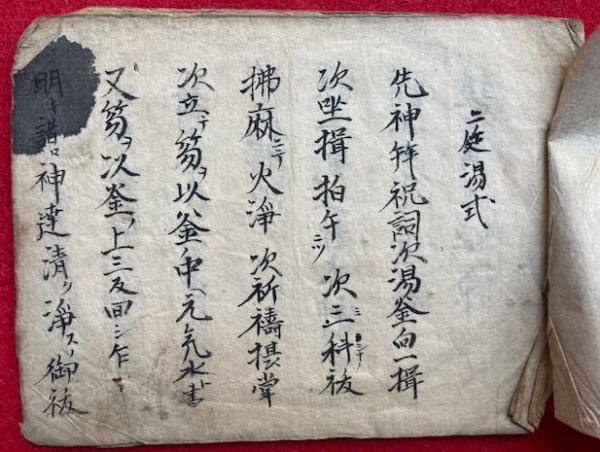 二庭湯式
先神拜祝詞次湯釜向一揖
次坐揖拍手二ツ次三科祓
拂麻ニテ火淨次祈禱摂掌
次立テ笏ヲ以釜ノ中ヘ元気水ト書
又笏ヲ以釜ノ上三反回シ乍
明キ諸神達清ク淨スノ御祓